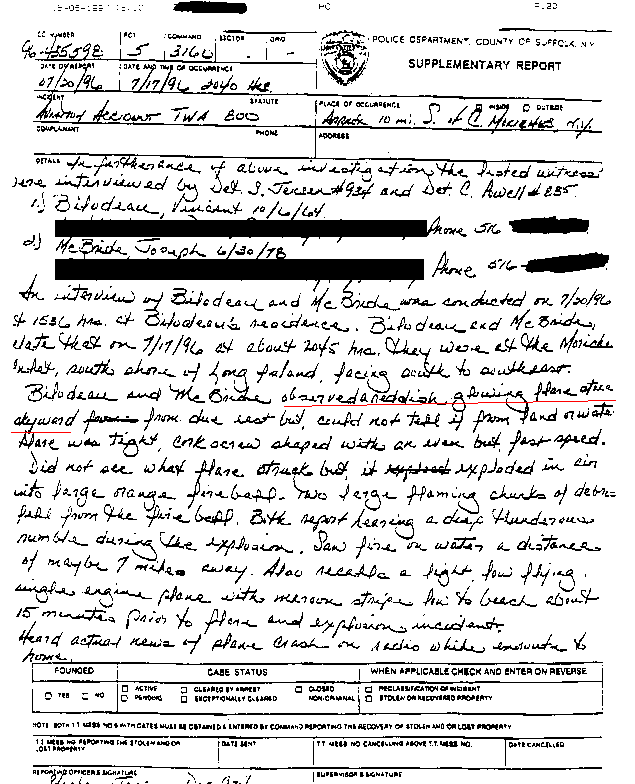 P.20
CC NUMBER PCT COMMAND SECTOR ORG
96-435598 5 3166 - -
POLICE DEPARTMENT, COUNTY OF SUFFOLK, N.Y.
SUPPLEMENTARY REPORT
DATE OF REPORT DATE AND TIME OF OCCURRENCE
07/20/96 7/17/96 2040 Hrs
INCIDENT STATUTE PLACE OF OCCURRENCE INSIDE OUTSIDE
Aviation Accident TWA 800 Approx 10 mi. S. of C. Moriches, N.Y.
COMPLAINANT PHONE ADDRESS
DETAILS In furtherance of above investigation the listed witness
were interviewed by Det. J. Jensen #934 and Det. C. #835.
1) Bilodeau, Vincent 10/6/64
Phone 516
2) McBride, Joseph 6/30/78
Phone 516-
An interview of Bilodeau and McBride was conducted on 7/20/96
at 1536 hrs. at Bilodeau's residence. Bilodeau and McBride,
state that on 7/17/96 at about 2045 hrs. they were at the Moriche
Inlet, south shore of Long Island, facing south to southeast.
Bilodeau and McBride observed a reddish glowing flare strea
skyward from due east but, could not tell if from land or wate
Flare was tight, cork screw shaped with an even but, fast speed.
Did not see what flare struck but, it exploded in air
into large orange fireball. Two large flaming chunks of debri
fell from the fire ball. Both report hearing a deep thunderous
rumble during the explosion. Saw fire on water a distance
of maybe 7 miles away. Also recalls a light, low flying
single engine plane with maroon stripe low to beach about
15 minutes prior to flare and explosion incident.
Heard actual news of plane crash on radio while enroute to
home.
FOUNDED CASE STATUS WHEN APPLICABLE CHECK AND ENTER ON REVERSE
YES NO ACTIVE CLEARED BY ARREST CLOSED RECLASSIFICATION OF INCIDENT
PENDING EXCEPTIONALLY CLEARED NON-CRIMINAL STOLEN OR RECOVERED PROPERTY
NOTE: BOTH T.T. MESS. NO'S WITH DATES MUST BE OBTAINED & ENTERED BY COMMAND REPORTING THE RECOVERY OF STOLEN AND/OR LOST PROPERTY
T.T. MESS. NO. REPORTING THE STOLEN AND/OR LOST PROPERTY DATE SENT T.T. MESS. NO. CANCELLING ABOVE T.T. MESS. NO. DATE CANCELLED
REPORTING OFFICER'S SIGNATURE SUPERVISOR'S SIGNATURE